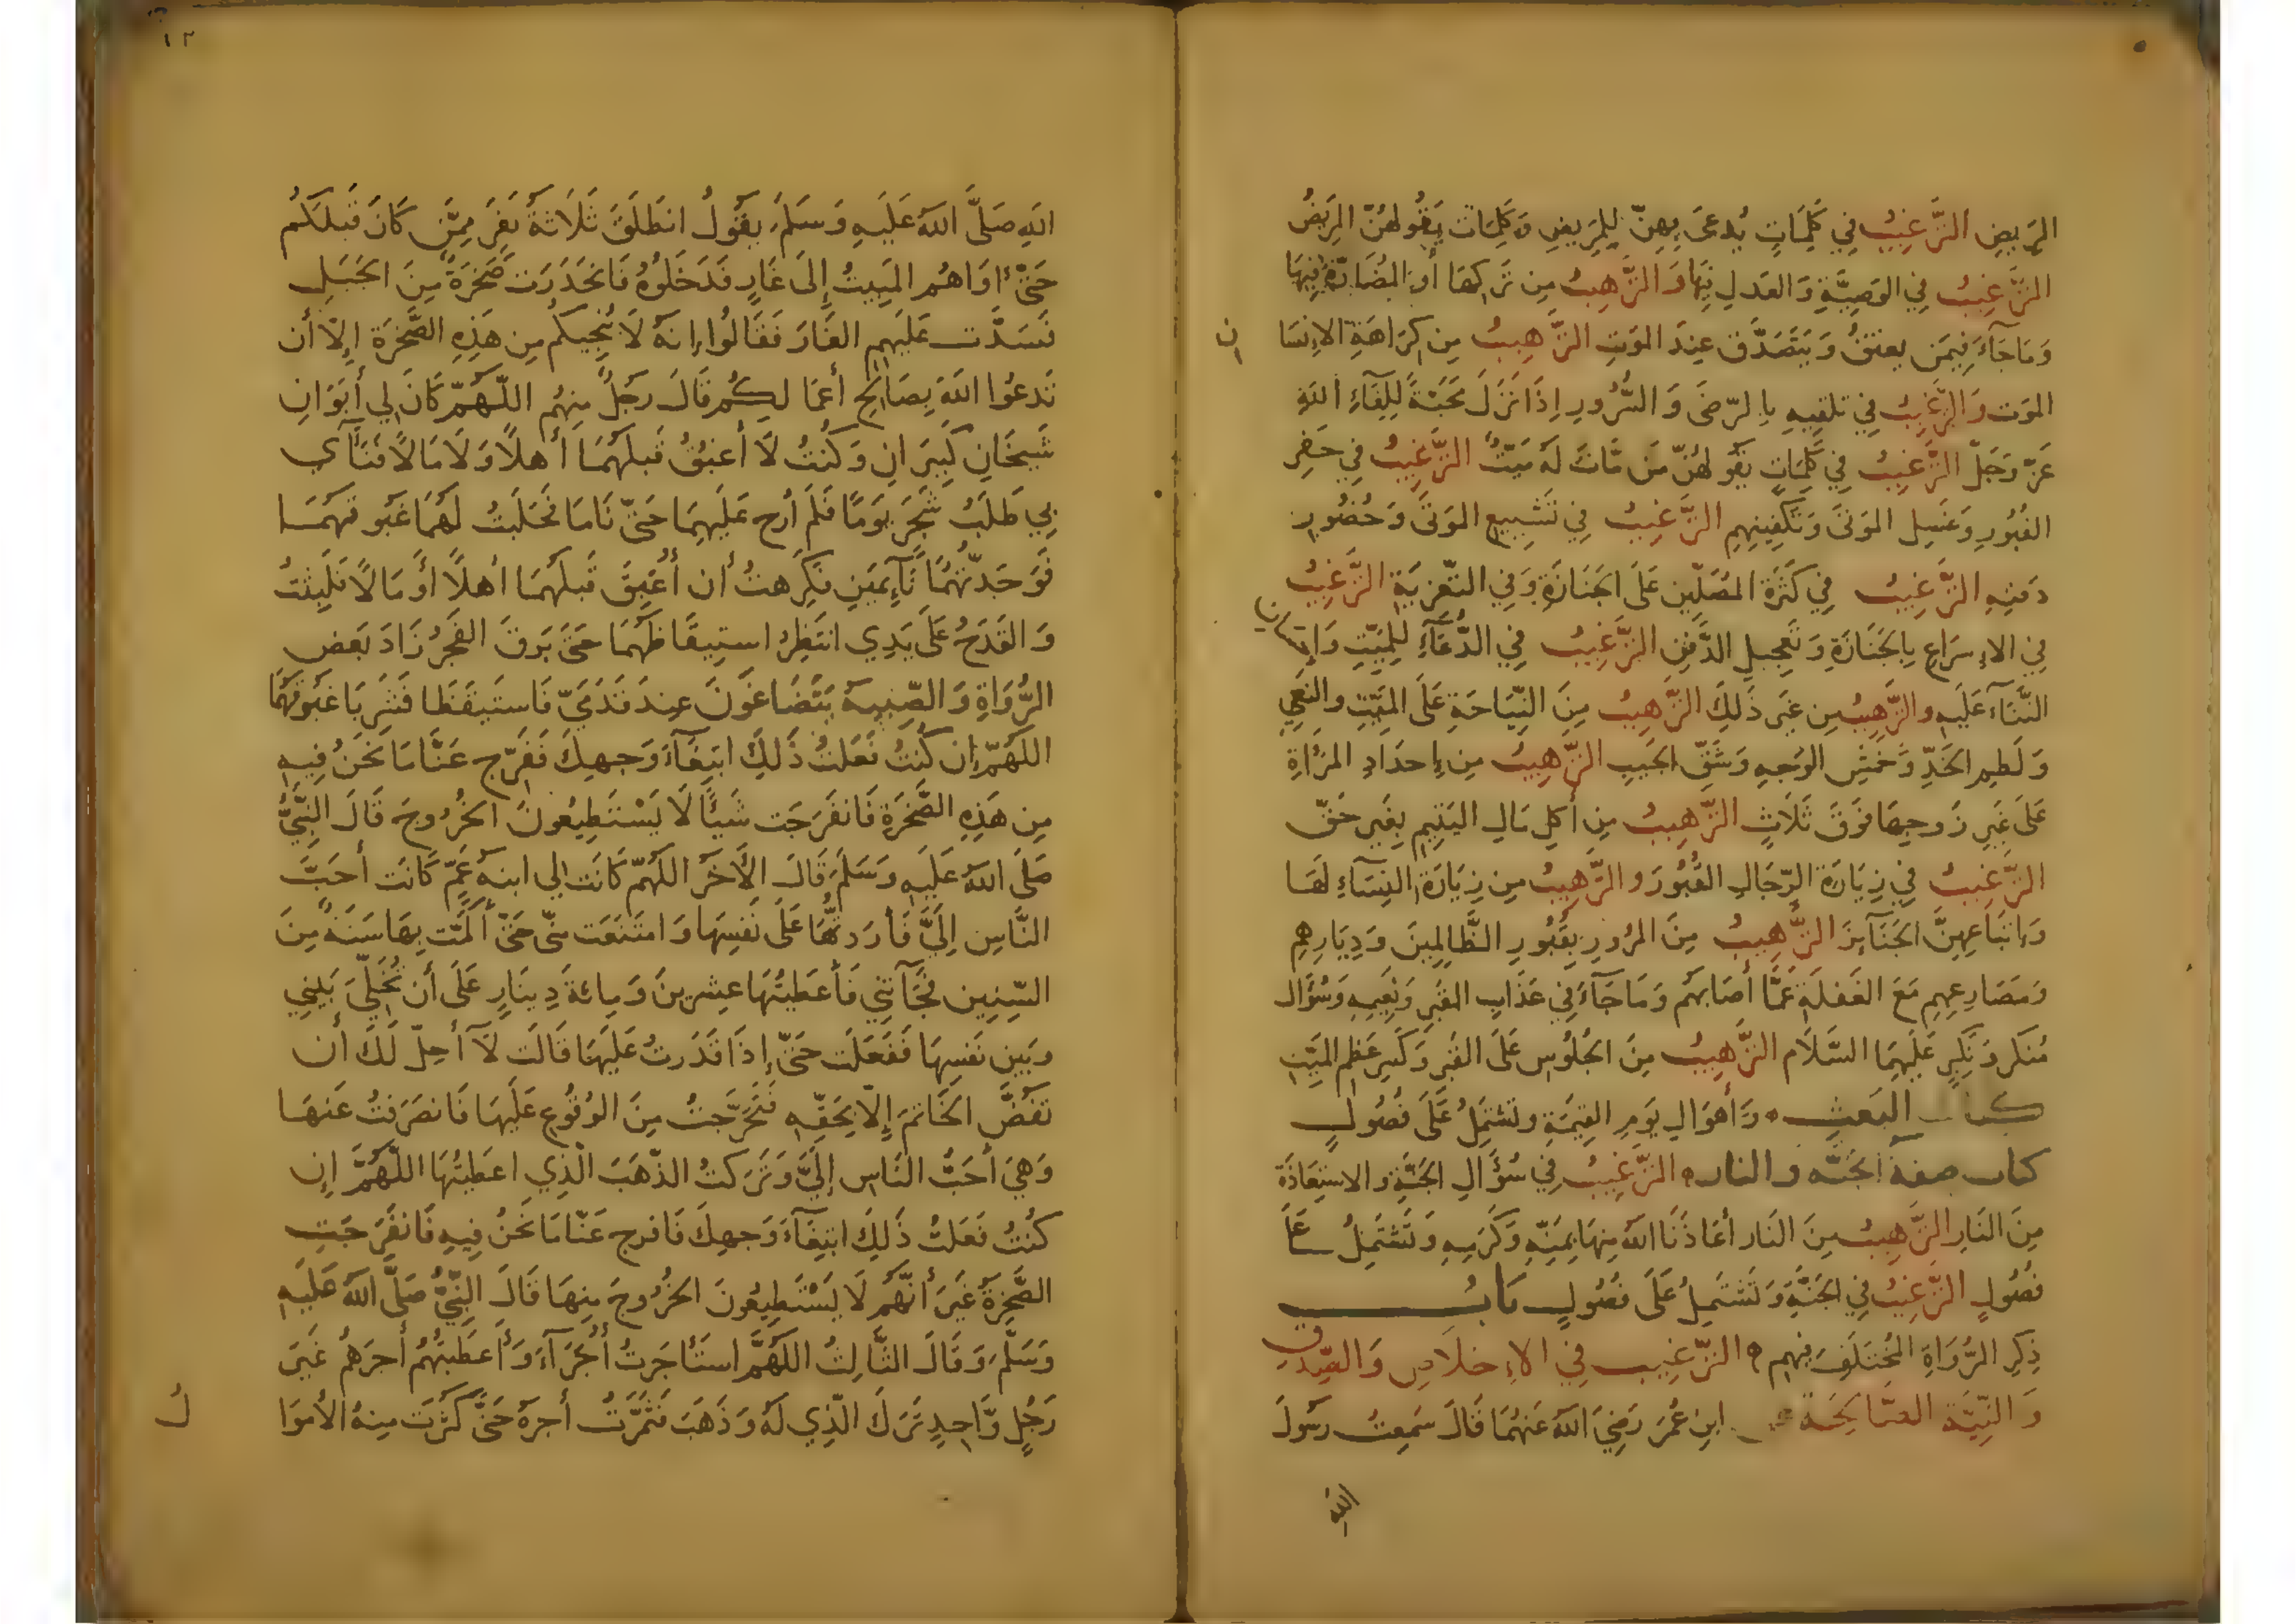 المَرِيضِ التَّرْغِيبُ فِي كَلِمَاتٍ يُدعَى بِهِنّ لِلمَرِيضِ وَكَلِمَات يَقُولهُنّ المَرِيضُ
التَّرْغِيبُ فِي الوَصِيَّةِ وَالعَدلِ فِيهَا وَالتَّرهِيبُ مِن تَركهَا أَوِ المُضَارَّةِ فِيهَا
وَمَا جَآءَ فِيمَن يعتقُ وَيَتَصَدَّق عِندَ المَوتِ التَّرهِيبُ مِن كرَاهَةِ الاِنسَا
ن
المَوت وَالتَّرغِيبُ فِي تلقيهِ بِالرّضَى وَالسُّرُورِ اِذَا نَزَلَ مَحَبَّةً لِلِقَآءِ اللَّهِ
عَزّ وَجَلّ التَّرْغِيبُ فِي كَلِمَاتٍ يَقُولهُنّ مَن مَّاتَ لَهُ مَيّتٌ التَّرغِيبُ فِي حَفرِ
القُبُورِ وَغَسلِ المَوتَى وَتَكفِينِهِم التَّرغِيبُ فِي تَشيِيع المَوتَى وَحُضُورِ
دَفنِهِ التَّرغِيبُ فِي كَثرَة المُصَلِّين عَلَى الجَنَازَةِ وَفِي التَّعزيَةِ التَّرغِيبُ
فِي الاِسرَاعِ بِالجَنَازَةِ وَتَعجِيلِ الدَّفنِ التَّرغِيبُ فِي الدُّعَآءِ لِلمَيّتِ وَإِحسَانِ
الثَّنَآءِ عَلَيهِ والتَّرهِيبُ مِن غَيرِ ذَلِكَ التَّرهِيبُ مِنَ النِّيَاحَةِ عَلَى المَيِّتِ والنَعيِ
وَلَطمِ الخَدِّ وَخَمشِ الوَجهِ وَشَقّ الجَيبِ التَّرهِيبُ مِن اِحدَادِ المَرأَةِ
عَلَى غَيرِ زَوجِهَا فَوقَ ثَلَاثٍ التَّرهِيبُ مِن أَكلِ مَالِ اليَتِيمِ بِغَيرِ حَقّ
التَّرغِيبُ فِي زِيَارَةِ الرّجَالِ القُبُورَ والتَّرهِيبُ مِن زِيَارَةِ النِسَآءِ لَهَا
وَاِتبَاعِهِنَّ الجَنَآئِزَ التَّرهِيبُ مِنَ المرُورِ بِقُبُورِ الظَّالِمِينَ وَدِيَارِهِم
وَمَصَارِعِهِم مَعَ الغَفلَةِ عَمَّا أَصَابَهُم وَمَا جَآءَ فِي عَذَابِ القَبرِ وَنَعِيمِهِ وَسُؤَال
مُنكر وَنَكِيرٍ عَلَيهِمَا السَّلَام التَّرهِيبُ مِنَ الجُلُوسِ عَلَى القَبرِ وَكَسرِ عَظمِ المَيِّتِ
كتاب البَعثِ وَأَهوَالِ يَومِ القِيمَةِ وتَشتمِلُ عَلَى فُصُولٍ
كتاب صفة الجَنّه والنار التَّرغِيبُ فِي سُؤَالِ الجَنَّةِ والاستِعَاذَة
مِنَ النَارِ التَّرهِيبُ مِنَ النَارِ أعَاذَنَا اللهُ مِنهَا بِمَنِّهِ وَكَرَمِهِ وَتَشتَمِلُ عَلَى
فُصُولٍ التَّرغِيبُ فِي الجَنَّةِ وَتَشتَمِلُ عَلَى فُصُولٍ بَابُ
ذِكرِ الرُّوَاةِ المُختَلَفِ فِيهِم التَّرغِيب فِي الاِخلَاصِ وَالصِّدقِ
وَالنِّيَّةِ الصَّالِحَةِ عن ابنِ عُمَرَ رَضِيَ اللهُ عَنهُمَا قَالَ سَمِعتُ رسُولَ
الله
١٢
اللهِ صَلَّى اللهُ عَلَيهِ وَسَلَّمَ يقُولُ انطَلَقَ ثَلَاثَةُ نَفَرٍ مِمَّن كَانَ قَبلَكُم
حَتَّى اوَاهُم المَبِيتُ إِلَى غَارٍ فَدَخَلُوهُ فَانحَدَرَت صَخرَةٌ مِنَ الجَبَلِ
فَسَدَّت عَلَيهِم الغَارَ فَقَالُوا اِنهُ لَا يُنجِيكُم مِن هَذِهِ الصَّخرَة اِلّا أَن
تَدعُوا اللهَ بِصَالِحِ أَعمَالِكُم قَالَ رَجُلٌ مِنهُم اللّهُمّ كَانَ لِي أَبَوَانِ
شَيخَانِ كَبِيرَانِ وَكُنتُ لَا أَغبُقُ قَبلَهُمَا أَهلًا وَلَا مَالًا فَنَآى
بِي طَلَبُ شَجَرٍ يَومًا فَلَم أُرح عَلَيهِمَا حَتّى نَامَا فَحَلَبتُ لَهُمَا غَبُوقَهُمَا
فَوَجَدتُّهُمَا نَآئِمَينِ فَكَرِهتُ أَن أَغبِقَ قَبلَهُمَا أَهلًا أَو مَالًا فَلَبِثتُ
وَالقَدَحُ عَلَى يَدِي انتَظِرُ استِيقَاظَهُمَا حَتَّى بَرَقَ الفَجرُ زَادَ بَعض
الرُّوَاةِ وَالصِّبيَةُ يَتَضَاغَونَ عِندَ قَدَمَيّ فَاستَيقَظَا فَشَرِبَا غَبُوقَهُمَا
اللهُمّ إِن كُنتُ فَعَلتُ ذَلِكَ ابتِغَآءَ وَجهِكَ فَفَرِّج عَنَّا مَا نَحنُ فِيهِ
مِن هَذِهِ الصَّخرَةِ فَانفَرَجَت شَيئًا لَا يَسْتَطِيعُونَ الخُرُوجَ قَالَ النَّبِيُّ
صَلَّى اللهُ عَلَيهِ وَسَلَّمَ قَالَ الآخَرُ اللهُمّ كَانَت لِي ابنَةُ عَمٍّ كَانَت أَحَبَّ
النَّاسِ إِلَيَّ فَأَرَدتُّهَا عَلَى نَفسِهَا وَامتَنَعَت مِنّي حَتّى أَلَمَّت بِهَا سَنَةٌ مِنَ
السِّنِين فَجَآءَتنِي فَأَعطَيتُهَا عِشرِينَ وَمِائةَ دِينَارٍ عَلَى أَن تُخَلِّيَ بَينِي
وبَين نَفسِهَا فَفَعَلَت حَتّى إِذَا قَدَرتُ عَلَيهَا قَالَت لَا أُحِلّ لَكَ أَن
تَفُضَّ الخَاتمَ إِلّا بِحَقِّهِ فَتَحَرَّجتُ مِنَ الوُقُوعِ عَلَيهَا فَانصَرَفتُ عَنهَا
وَهِيَ أَحَبُّ النَاسِ إِلَيَّ وَتَرَكتُ الذّهَبَ الّذِي اعطَيتُهَا اللّهُمَّ اِن
كُنتُ فَعَلتُ ذَلِكَ ابتِغَآءَ وَجهِكَ فَافرج عَنّا مَا نَحنُ فِيهِ فَانفَرَجَتِ
الصَّخرَةُ غَيرَ أَنَّهُم لَا يَسْتَطِيعُونَ الخُرُوجَ مِنهَا قَالَ النّبِيُّ صَلَّى اللهُ عَلَيهِ
وَسَلَّمَ وَقَالَ الثَّالِثُ اللهُمَّ استَأجَرتُ أُجَرَآءَ وَأَعطَيتُهُم أَجرَهُم غَيرَ
رَجُلٍ وَّاحِدٍ تَرَكَ الّذِي لَهُ وَذَهَبَ فَثَمَّرتُ أَجرَهُ حَتَّى كَثُرَت مِنهُ الأَموَا
لُ